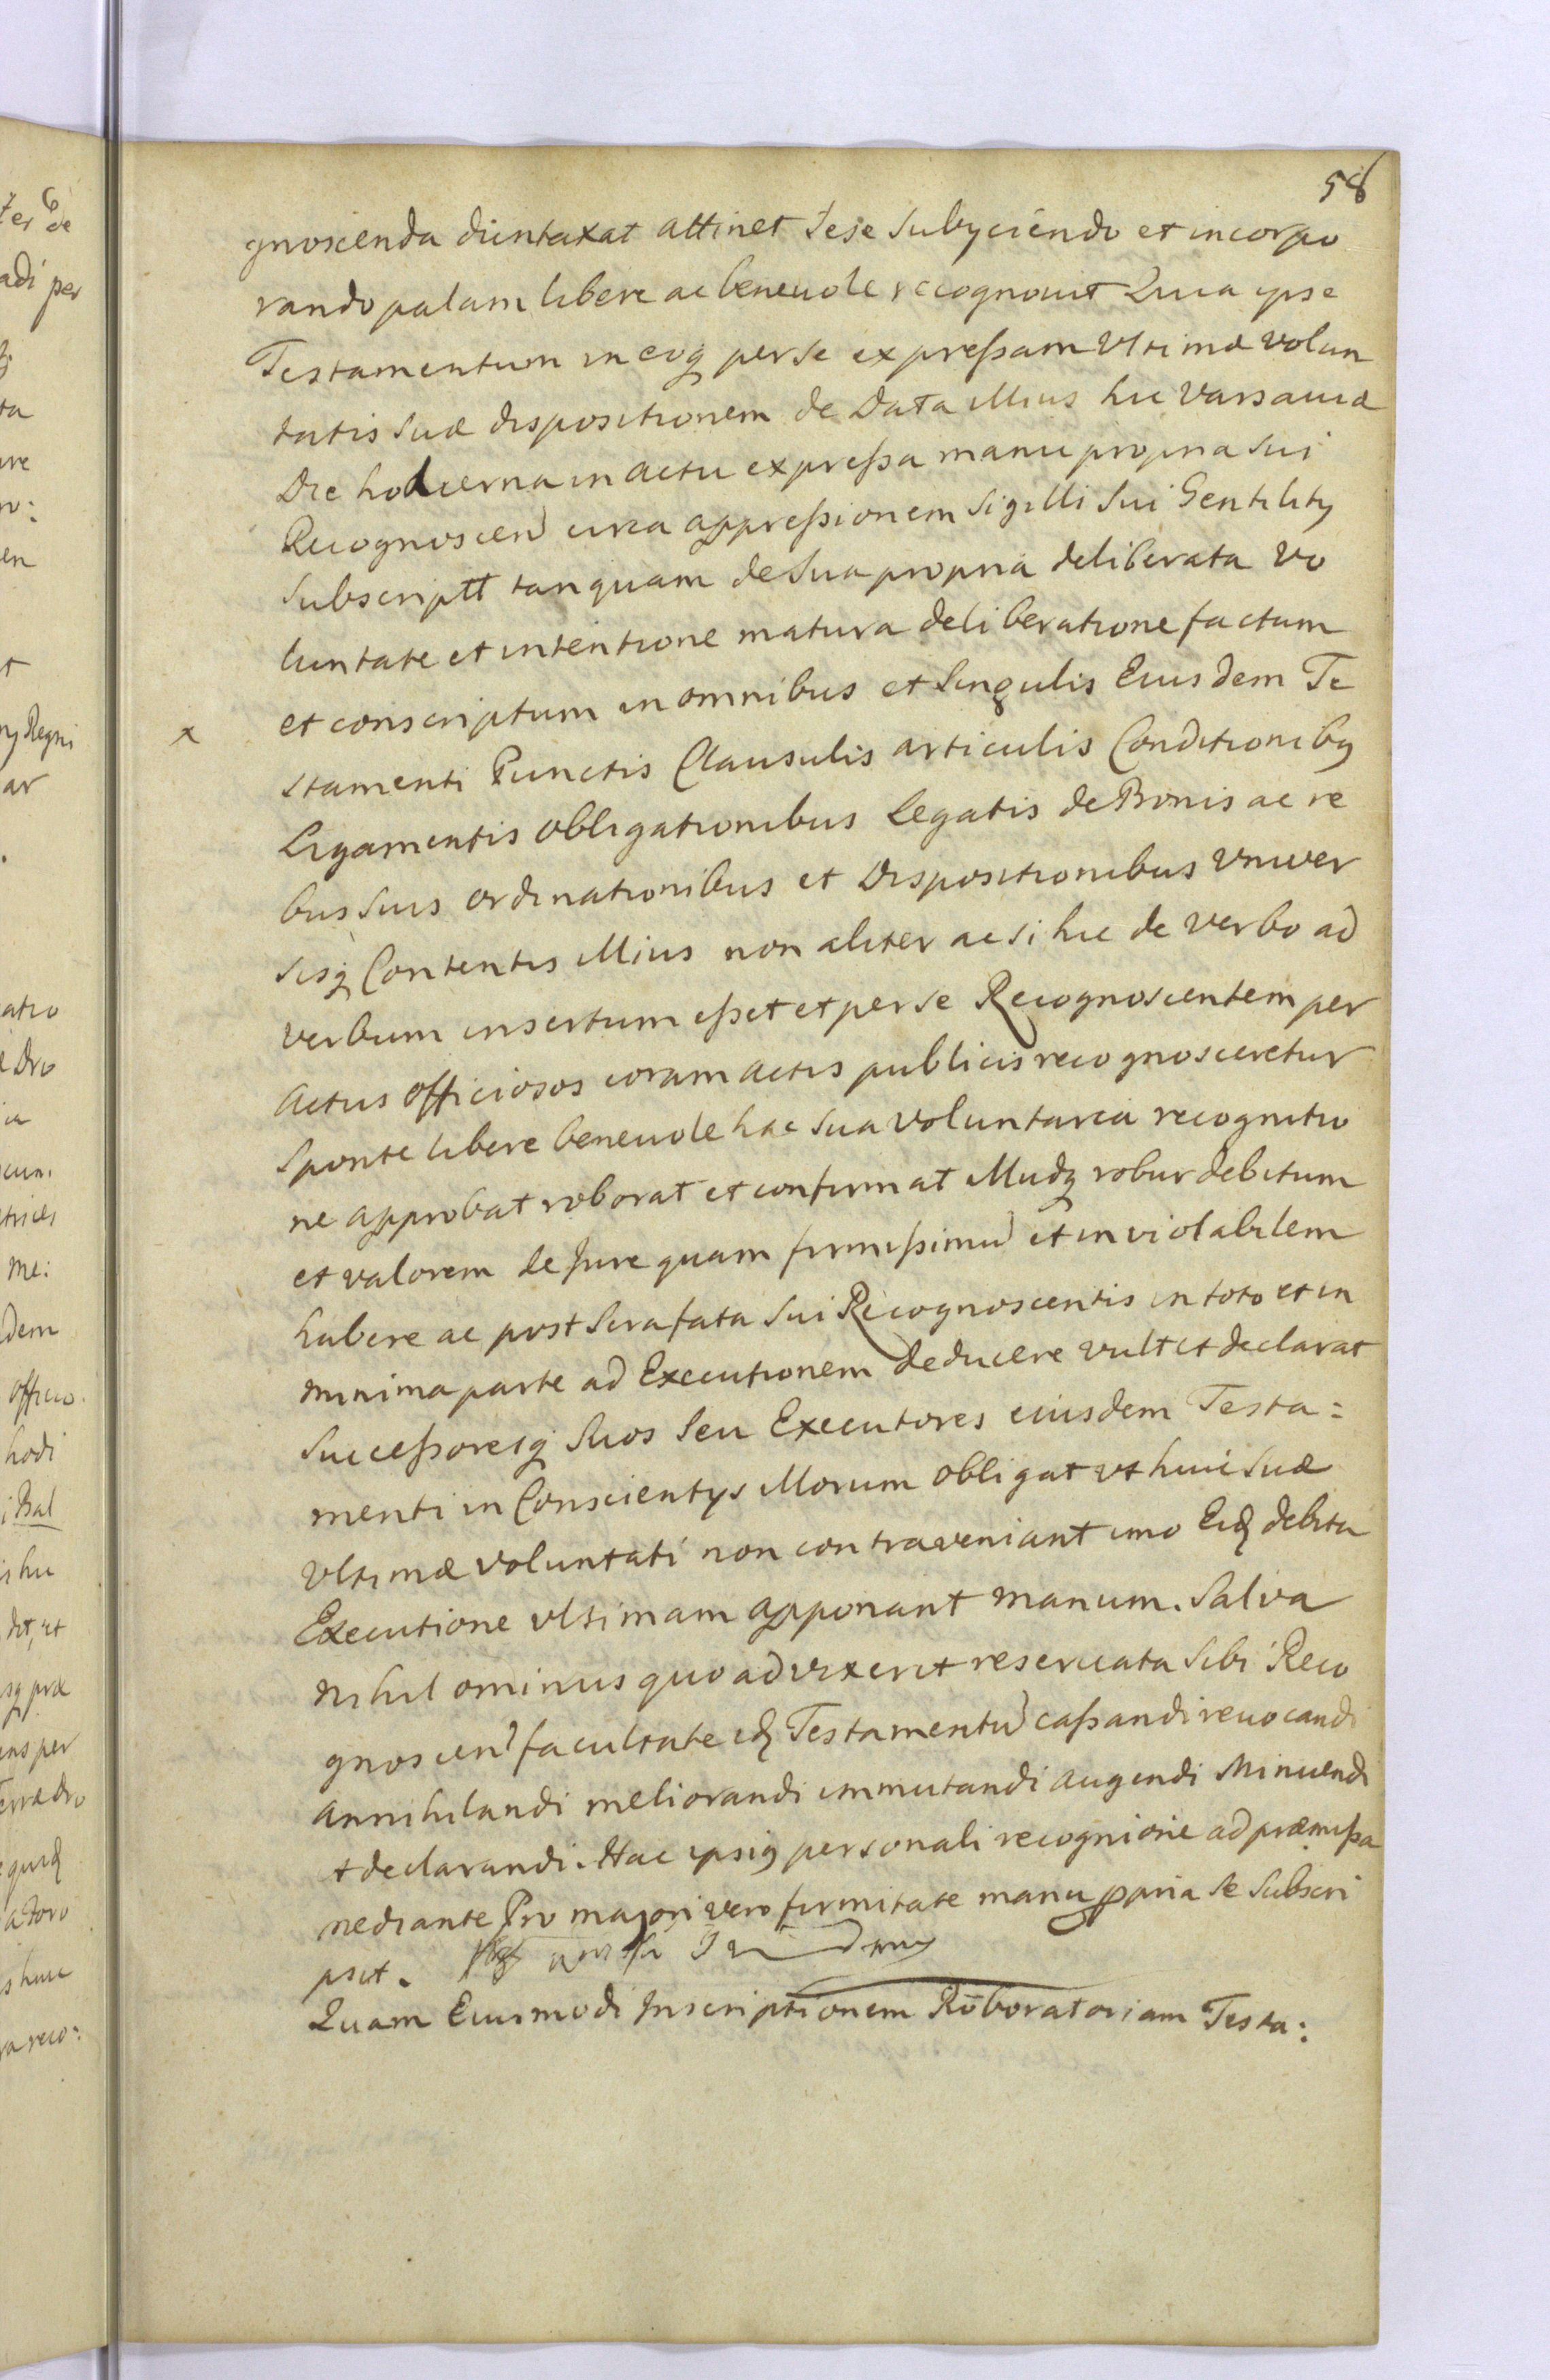 58
gnoscenda duntaxat attinet sese subyciendo et incorpo
rando palam libere ac beneuole recognouit Quia ipse
Testamentum in eoq per se expreßam Vltimæ volun
tatis suæ dispositionem de Data illius hic Varsauiæ
Die hodierna in actu expreßa manu propria sui
Recognoscen circa appreßionem Sigilli sui Gentility
subscriptt tanquam de sua propria deliberata vo
luntate et intentione matura deliberatione factum
et conscriptum in omnibus et singulis Eiusdem Te
x
stamenti Punctis Clausulis articulis Conditionibq
Ligamentis obligationibus Legatis de Bonis ac re
bus suis ordinationibus et Dispositionibus vniver
sisq Contentis illius non aliter ac si hic de verbo ad
verbum insertum eßet et per se Recognoscentem per
actus officiosos coram actis publicis recognosceretur
sponte libere beneuole hac sua voluntaria recognitio
ne approbat roborat et confirmat illudq robur debitum
et valorem de Jure quam firmißimu et inviolabilem
habere ac post sera fata sui Recognoscentis in toto et in
minima parte ad Executionem deducere vult et declarat
succeßoresq suos seu Executores eiusdem Testa:
menti in Conscientys illorum obligat vt huic suæ
vltimæ voluntati non contraveniant imo Eiq debita
Executione vltimam apponant manum. Salva
nihilominus quo ad vixerit reseruata sibi Reco
gnoscen facultate eq Testamentu caßandi reuocandi
annihilandi meliorandi immutandi augendi Minuendi
t declarandi. Hac ipsiq personali recognione ad præmißa
mediante Pro majori vero firmitate manu ppria se subscri
psit.
Quam Eiusmodi Inscriptionem Roboratoriam Testa: